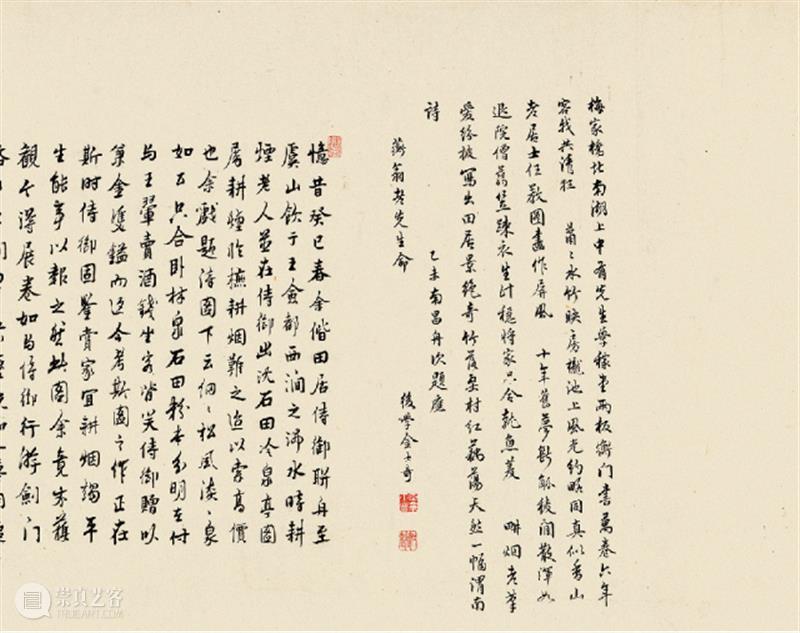 梅家橋北南湖上中有先生學稼堂兩板衡門書萬卷六年
容我共清狂 蕭〻水竹映房櫳池上風光約略同真似香山
老居士任教圖畫作屏風 十年舊夢斷觚稜閒散渾如
退院僧蒻笠疎衣生計穩將家只合託魚菱 畊烟老筆
愛紛披寫出田居景絶奇竹桑村紅藕蕩天然一幅渭南
詩 乙未南昌舟次題應
蘅翁老先生命
後學金士奇
憶昔癸巳春余偕田居侍御聯舟至
虞山飲于王僉都西澗之水時耕
煙老人並在侍御出沈石田冷泉亭圖
屬耕煙臨橅耕烟難之迨以索高價
也余戲題詩圖下云細〻松風淡〻泉
如公只合卧林泉石田粉本分明在付
与王翬賣酒錢坐客皆笑侍御贈以
兼金雙鎰而迄今考斯圖之作正在
斯時侍御固鑒賞家宜耕烟竭平
生能事以報之然此圖余竟未獲
觀今得展卷如与侍御行游劍門
崇真艺客